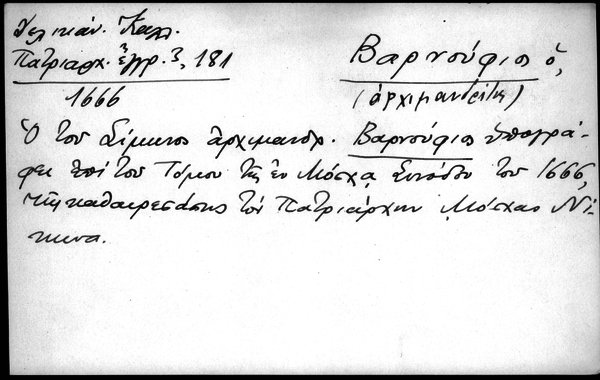 Δελικάν. Καλλ.
Πατριαρχ. ἔγγρ. 3, 181
1666
Βαρνούφιος ὁ,
(ἀρχιμανδρίτης)
Ὁ τοῦ Σίμωνος ἀρχιμανδρ. Βαρνούφιος ὑπογρά-
φει ἐπὶ τοῦ Τόμου τῆς ἐν Μόσχᾳ Συνόδου τοῦ 1666,
τῆς καθαιρεσάσης τὸν Πατριάρχην Μόσχας Νί-
κωνα.